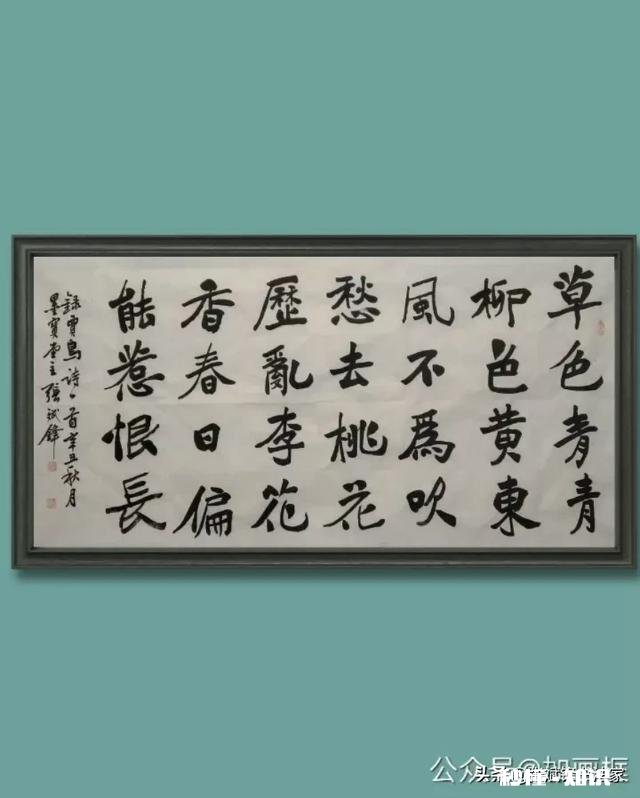 草色青青
柳色黄東
風不爲吹
愁去桃花
歷亂李花
香春日偏
能惹恨長
錄賈島詩一首辛丑秋月
墨寶堂主張斌鋒
公众号@加画框
头条
秒懂·知识